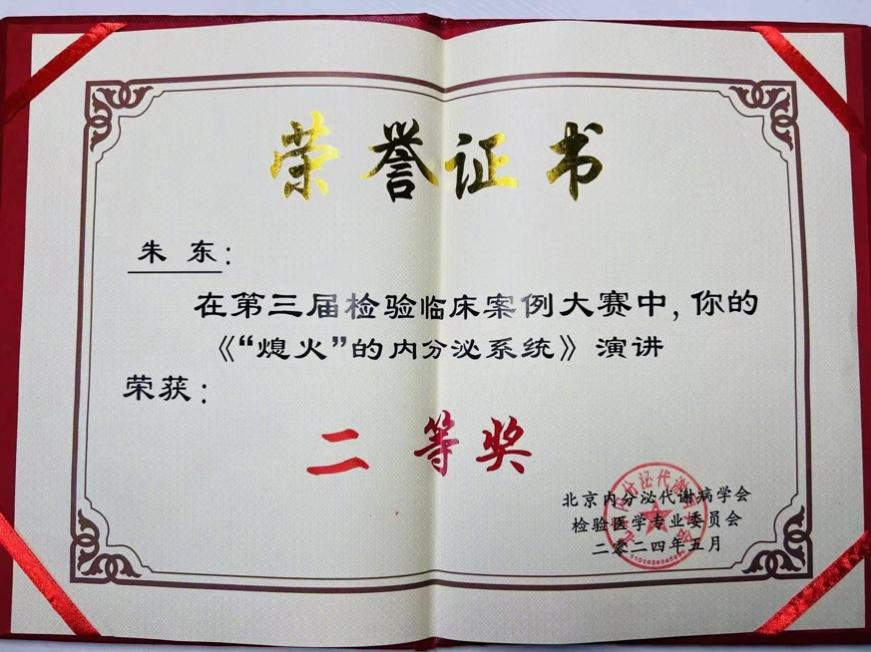 荣誉证书
朱 东：
在第三届检验临床案例大赛中，你的
《“熄火”的内分泌系统》演讲
荣获：
二等奖
北京内分泌代谢病学会
检验医学专业委员会
二零二四年五月